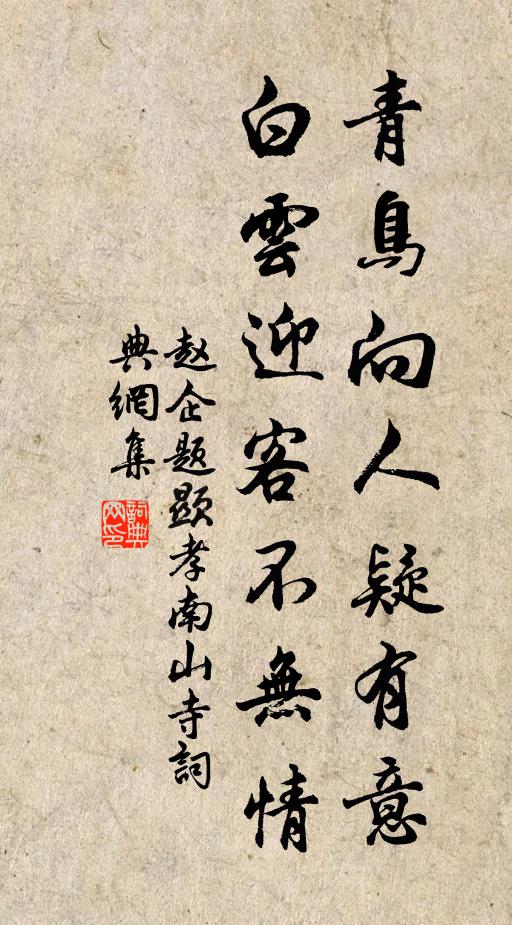 青鳥向人疑有意
白雲迎客不無情
赵企题顯孝南山寺詞
典網集
詞典
网印